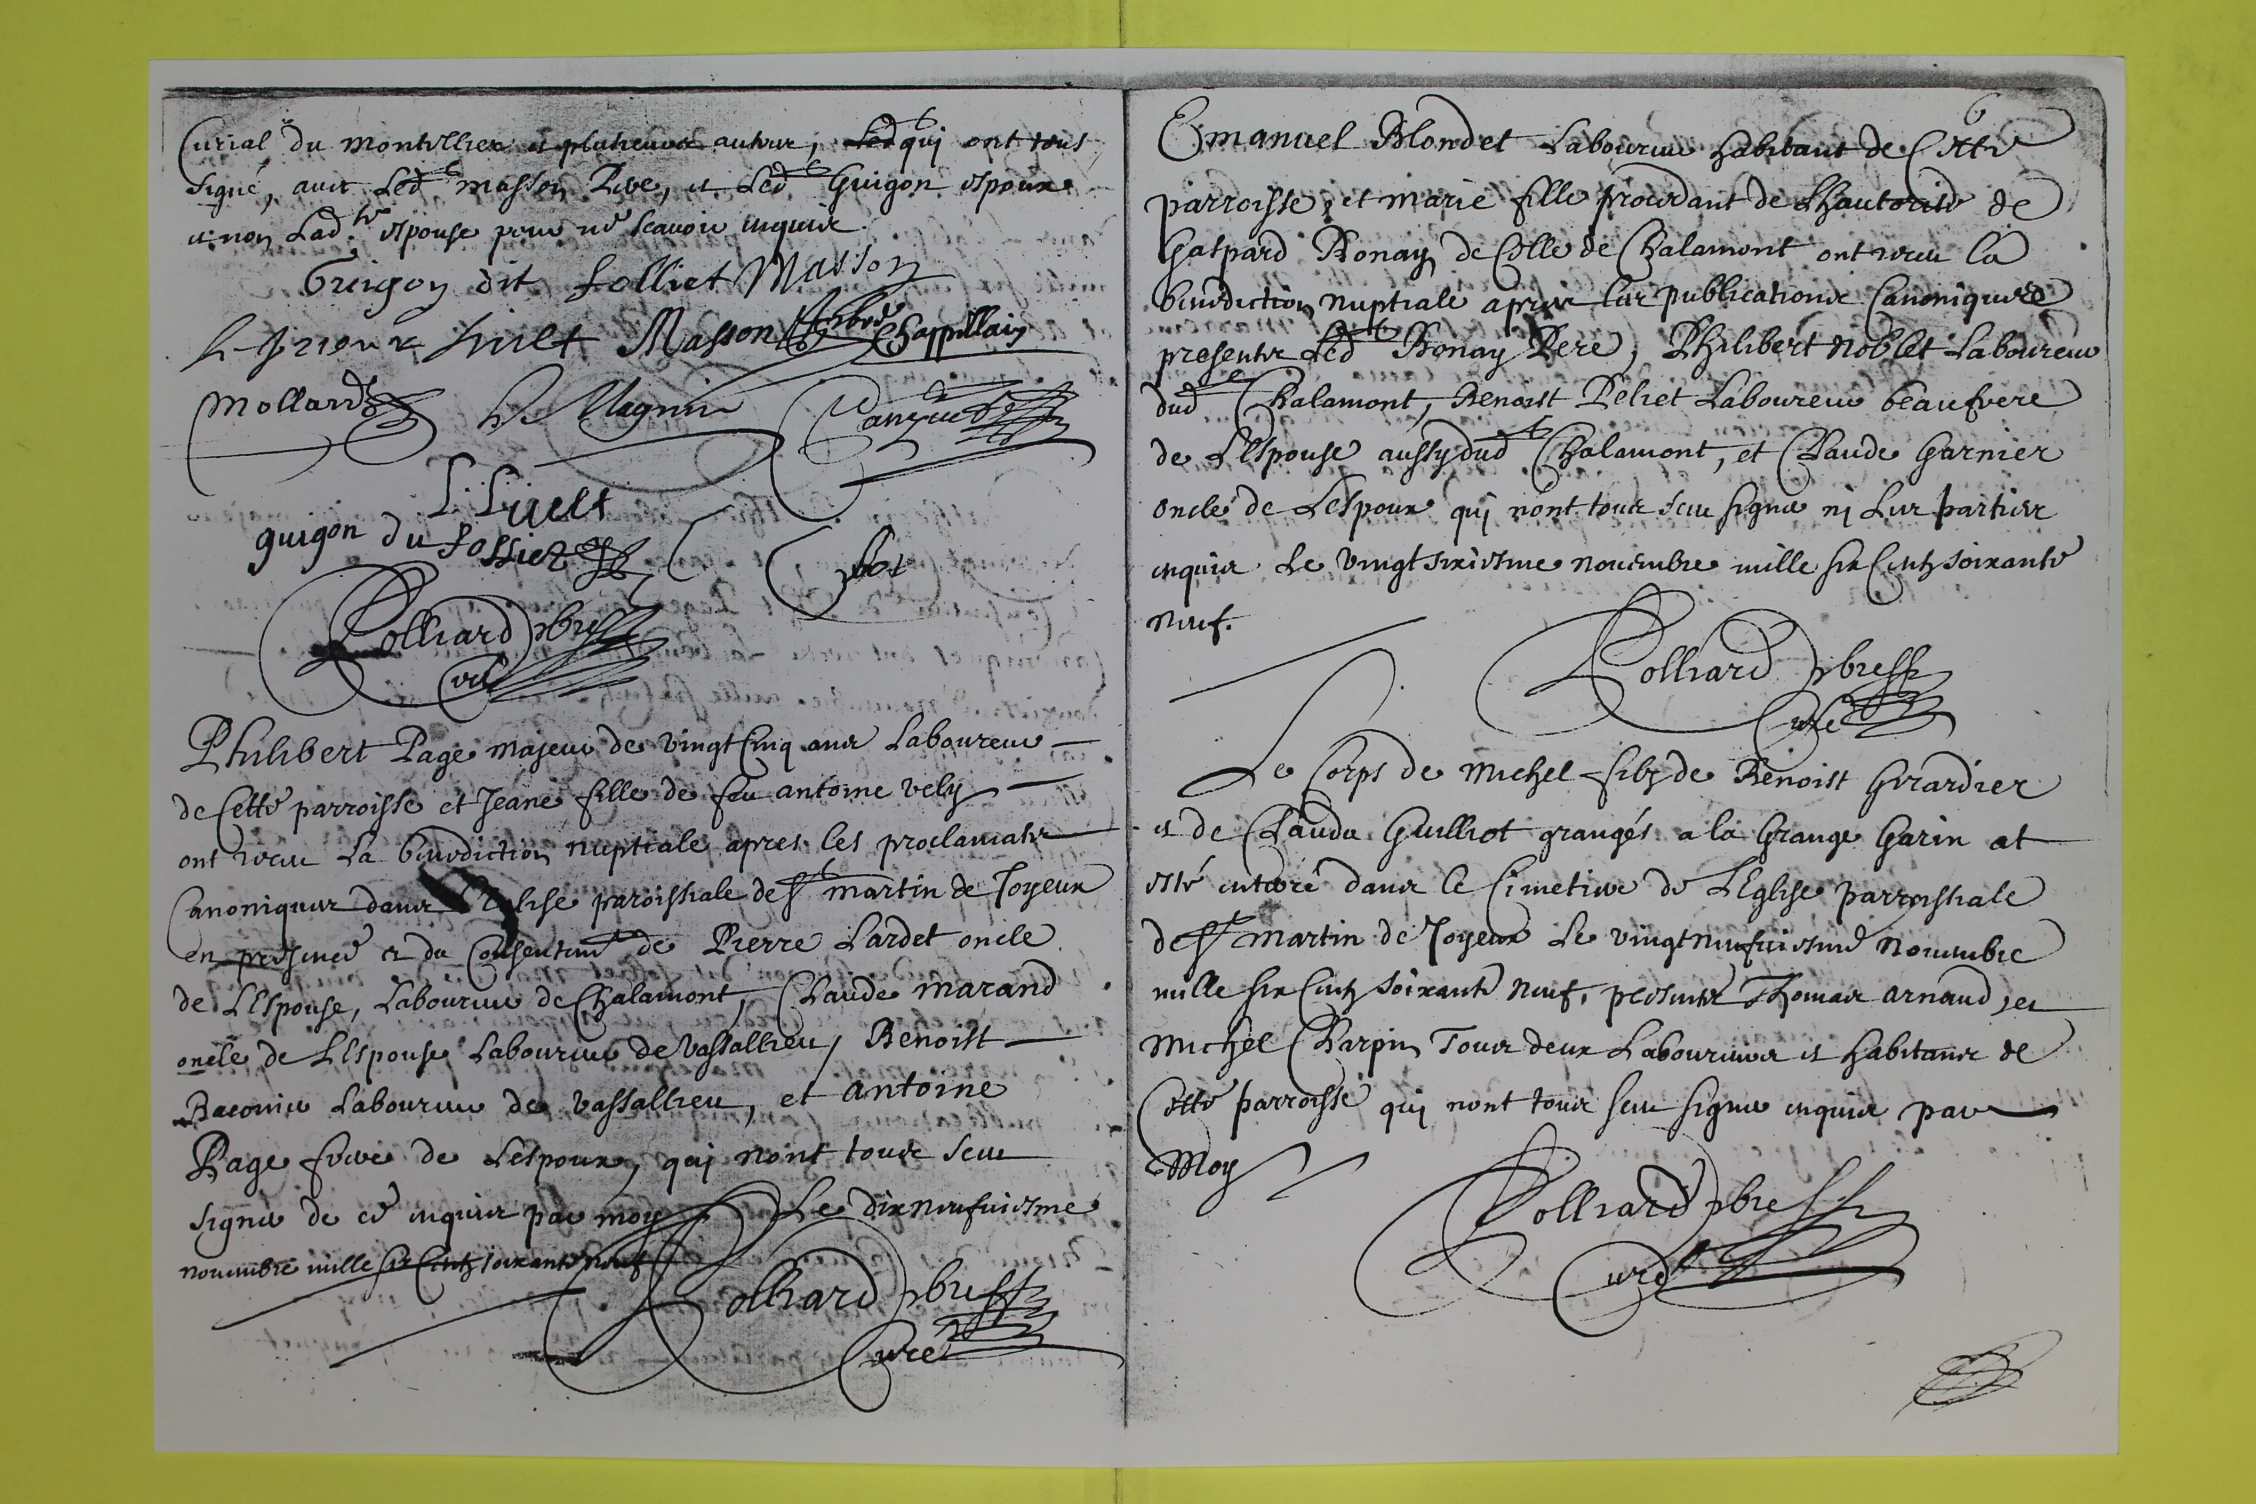 Curial du montellier et plusieurs autres, Led qui ont tous
signé, avec Led masson Pere, et Led Guigon espoux
et non Lad.te espouse pour ne scavoir enquise
Guigon dit folliet Masson
Masson Chappillain
Mollard Magnin
L. Livelt
guigon du fossiez
Rolliard pbre
Curé
Philibert Page majeur de vingt Cinq ans Laboureur
de Cette parroisse et Jeane fille de feu antoine vely
ont receu La benediction nuptiale apres les proclamats
Canoniques dans L'Eglise paroissiale de St martin de Joyeux
en presence et du Consentemt de Pierre Lardet oncle
de L'Espouse, Laboureur de Chalamont, Claude marand
oncle de L'Espouse Laboureur de vassallieu, Benoist
Laboureur de vassallieu, et antoine
Page frere de Lespoux, qui nont tous sceu
signer de ce enquis par moy Le dixneufuiesme
nouembre mille six Centz soixante neuf
Rolliard pbre
Curé
6
Emanuel Blondet Laboureur habitant de Cette
parroisse, et marie fille procedant de Lhautorité de
Gaspard Bonay de Celle de Chalamont ont receu la
benediction nuptiale apres les publications Canoniques
presents Led Bonay Pere, Philibert noblet Laboureur
dud Chalamont, Benoist Peliet Laboureur beaufrere
de L'Espouse aussy dud Chalamont, et Claude Garnier
oncle de L'espoux qui nont tous sceu signer ni Les parties
enquis Le vingt sixiesme nouembre mille six Centz soixante
neuf.
Rolliard pbre
Curé
Le Corps de Michel filz de Benoist Girardier
et de Clauda Guilliot grangés a la Grange Garin at
esté enterré dans le Cimetiere de L'Eglise parroissiale
de St martin de Joyeux Le vingt neufuiesme nouembre
mille six Centz soixante neuf, presents Thomas arnaud, et
Michel Charpin Tous deux Laboureurs et habitans de
Cette parroisse qui nont tous sceu signer enquis par
Moy
Rolliard pbre
Curé